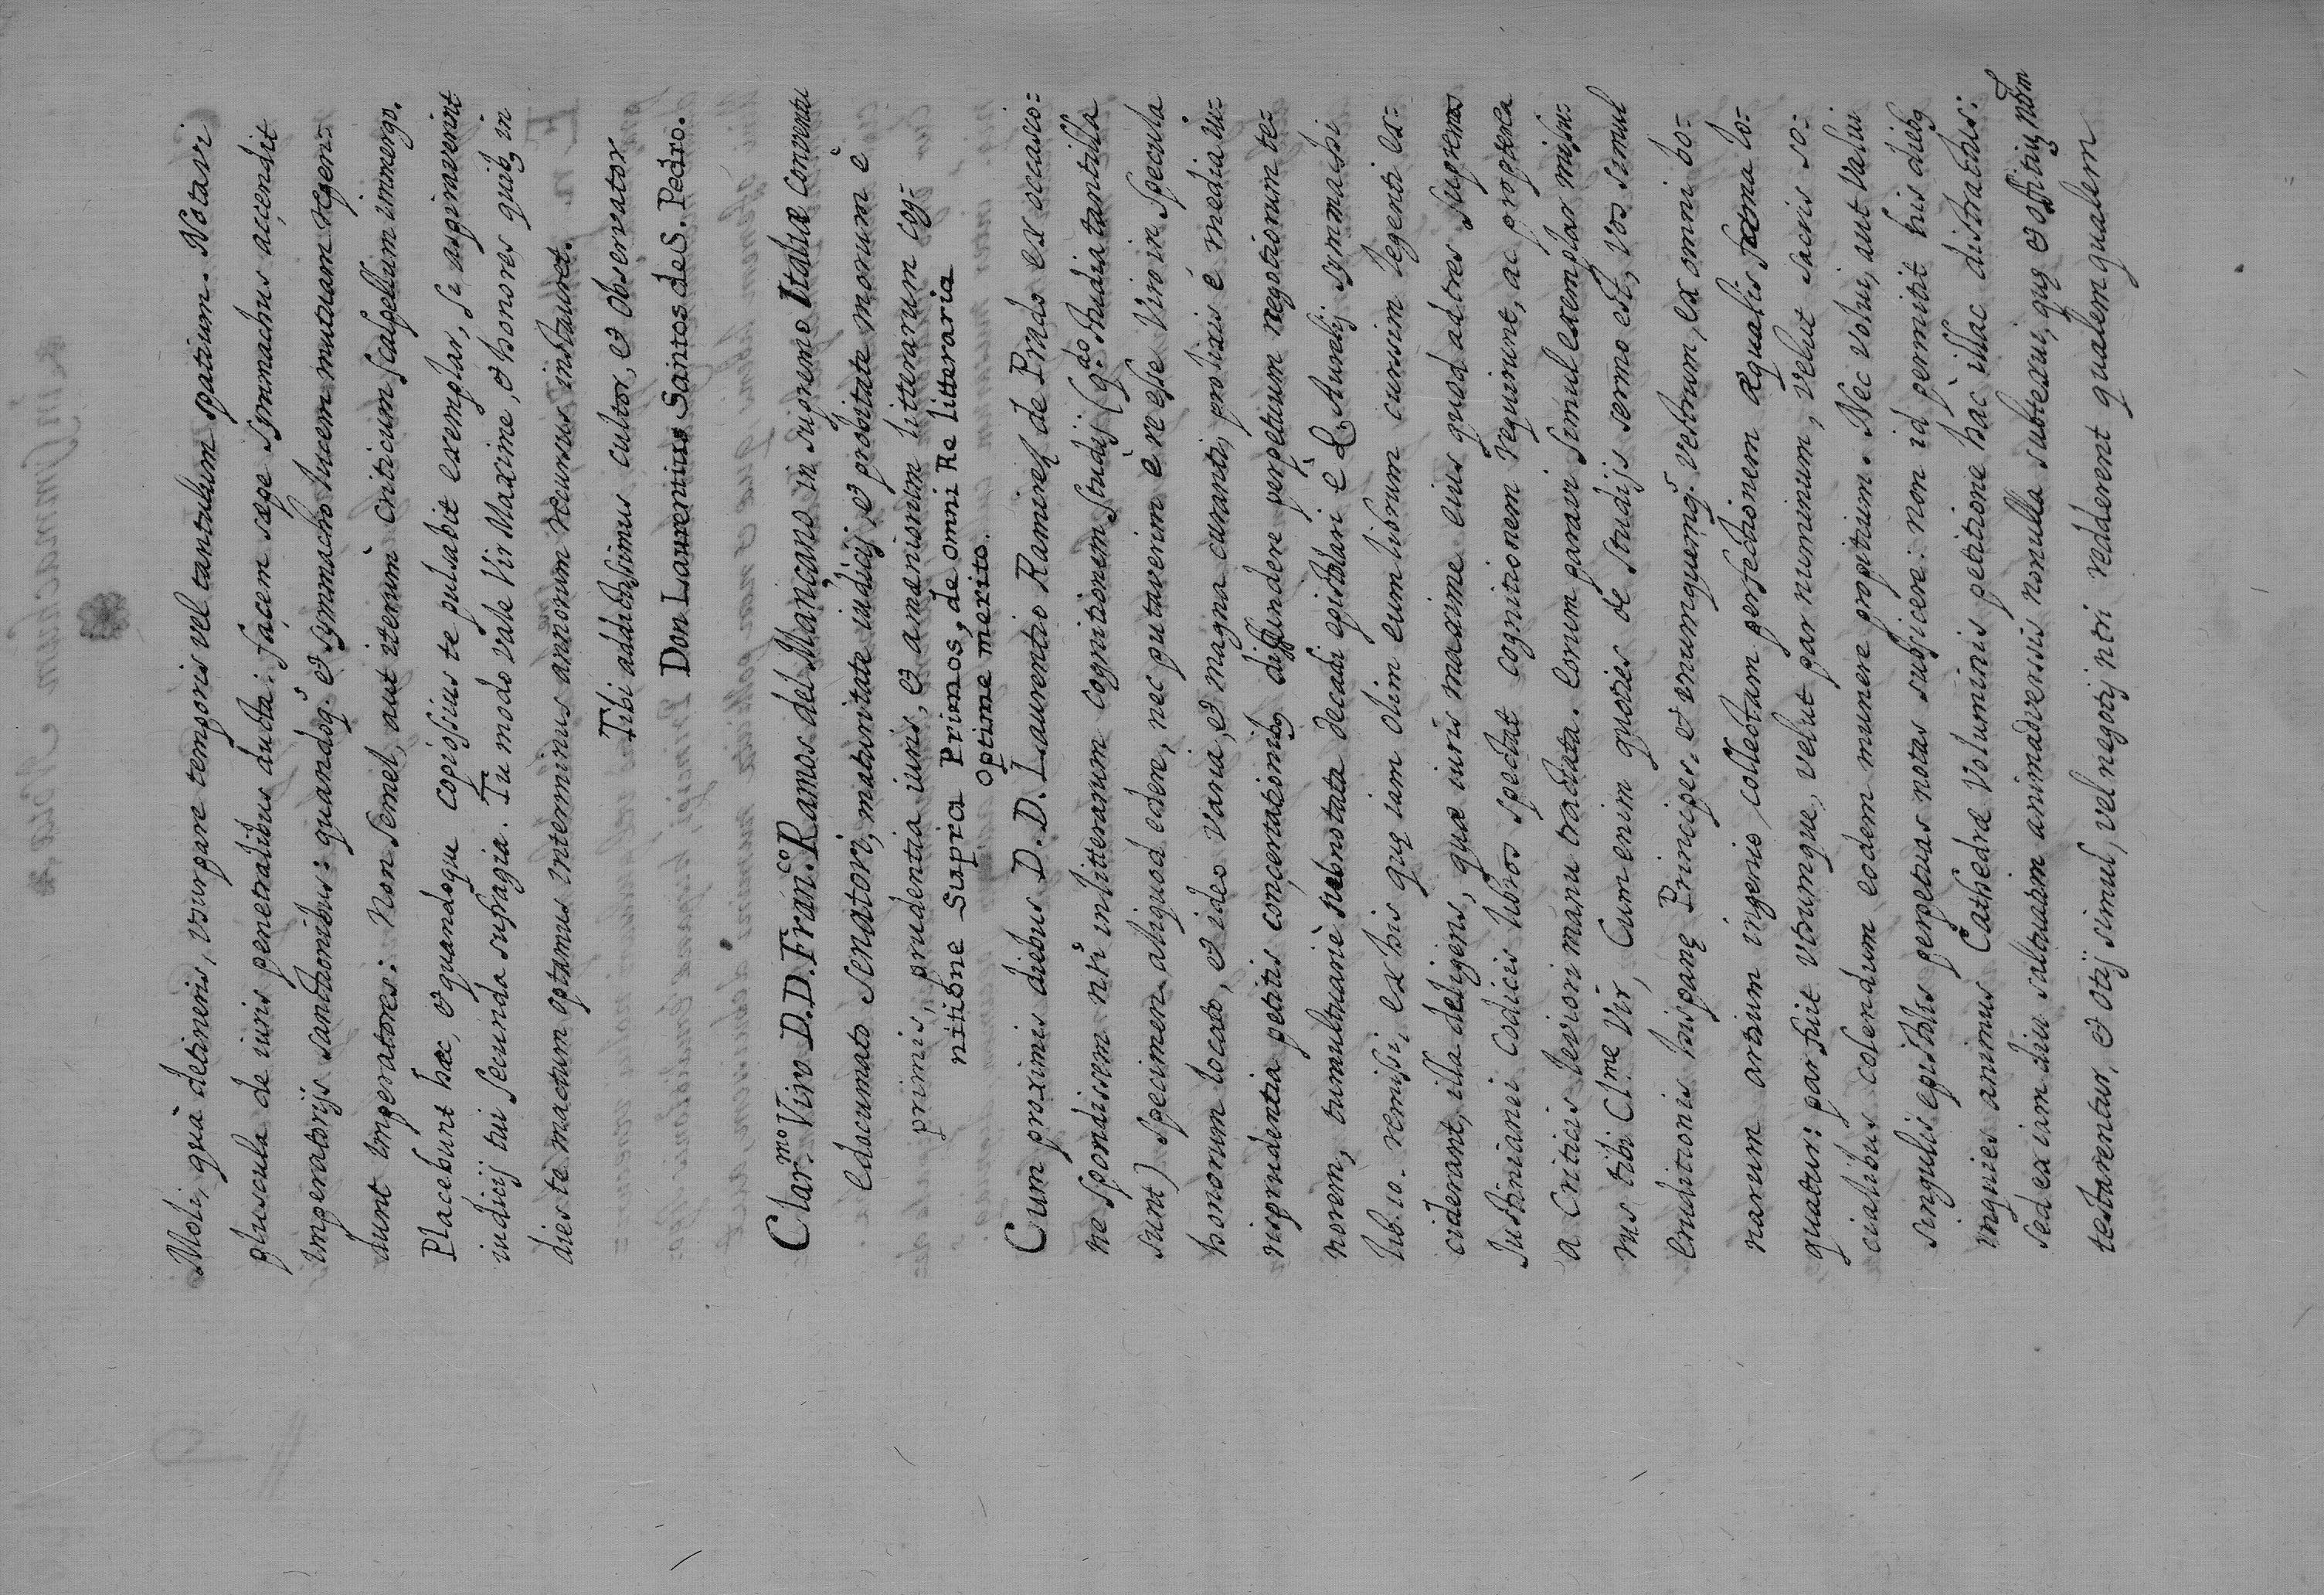 Moli, qua detineris, vsurpare temporis vel tantulum spatium. Notavi
pluscula de iuris penetralibus ducta: facem sæpe Symmachus accendit
Imperatorijs sanctionibus: quandoq. & Symmacho lucem mutuam regerun
dunt Imperatores: Non semel, aut iterum criticum scalpellum immergo.
Placebunt hæc, & quandoque copiosius te pulsabit exemplar, si aspiraverint
iudicij tui secunda sufragia. Tu modo vale Vir Maxime, & honores quib, in
dies te mactum optamus interminus annorum recursus instauret.
Tibi addictissimus cultor, & observator
Don Laurentius Santos de S. Pedro.
Clar.mo Viro D.D. Fran.co Ramos del Mançano in supremo Italiæ conventu
edocumato senatori, maturitate iudicij, & probitate morum è
primis, prudentia iuris, & amæniorum litterarum cog-
nitione Supra Primos, de omni Re litteraria
optime merito.
Cum proximis diebus D. D. Laurentio Ramirez de Prado ex occasio=
ne spondissem nr̃i in litterarum cognitionem studij (q.do studia tantilla
sunt) specimen aliquod edere, nec putaverim è re esse Viro in specula
honorum locato, & ideo varia, & magna curanti, prolixis è media iu=
risprudentia petitis concertationib, diffundere perpetuum negotiorum te=
norem, tumultuariè subnotata decadi epistolari è Q. Aurelij Symmachi
lib. 10. remisi, ex his quę iam olim eum librum cursim legenti ex=
ciderant, illa deligens, quæ iuris maxime eius quod ad tres supremos
Justinianei codicis libros spectat cognitionem requirunt, ac propterea
a Criticis leviori manu tractata. Eorum paravi simul exemplar missu=
rus tibi Cl.me Vir, Cum enim quoties de studijs sermo est, Vos simul
eruditionis hispanę Principes, & vnumquemq. vestrum, ex omni bo=
narum artium ingenio collectam perfectionem æqualis fama lo=
quatur: par fuit vtrumque, velut par numinum, velut sacris so=
cialibus colendum eodem munere propitium. Nec volui, aut valui
singulis epistolis perpetuas notas subijcere: non id permitit his dieb,
inquies animus Cathedræ voluminis petitione hac illac distractus:
sed ex iam diu saltuatim animadversis nonulla subtexui, quę & ositiũ nr̃m
testarentur, & otij simul, vel negotij nr̃i redderent qualemqualem